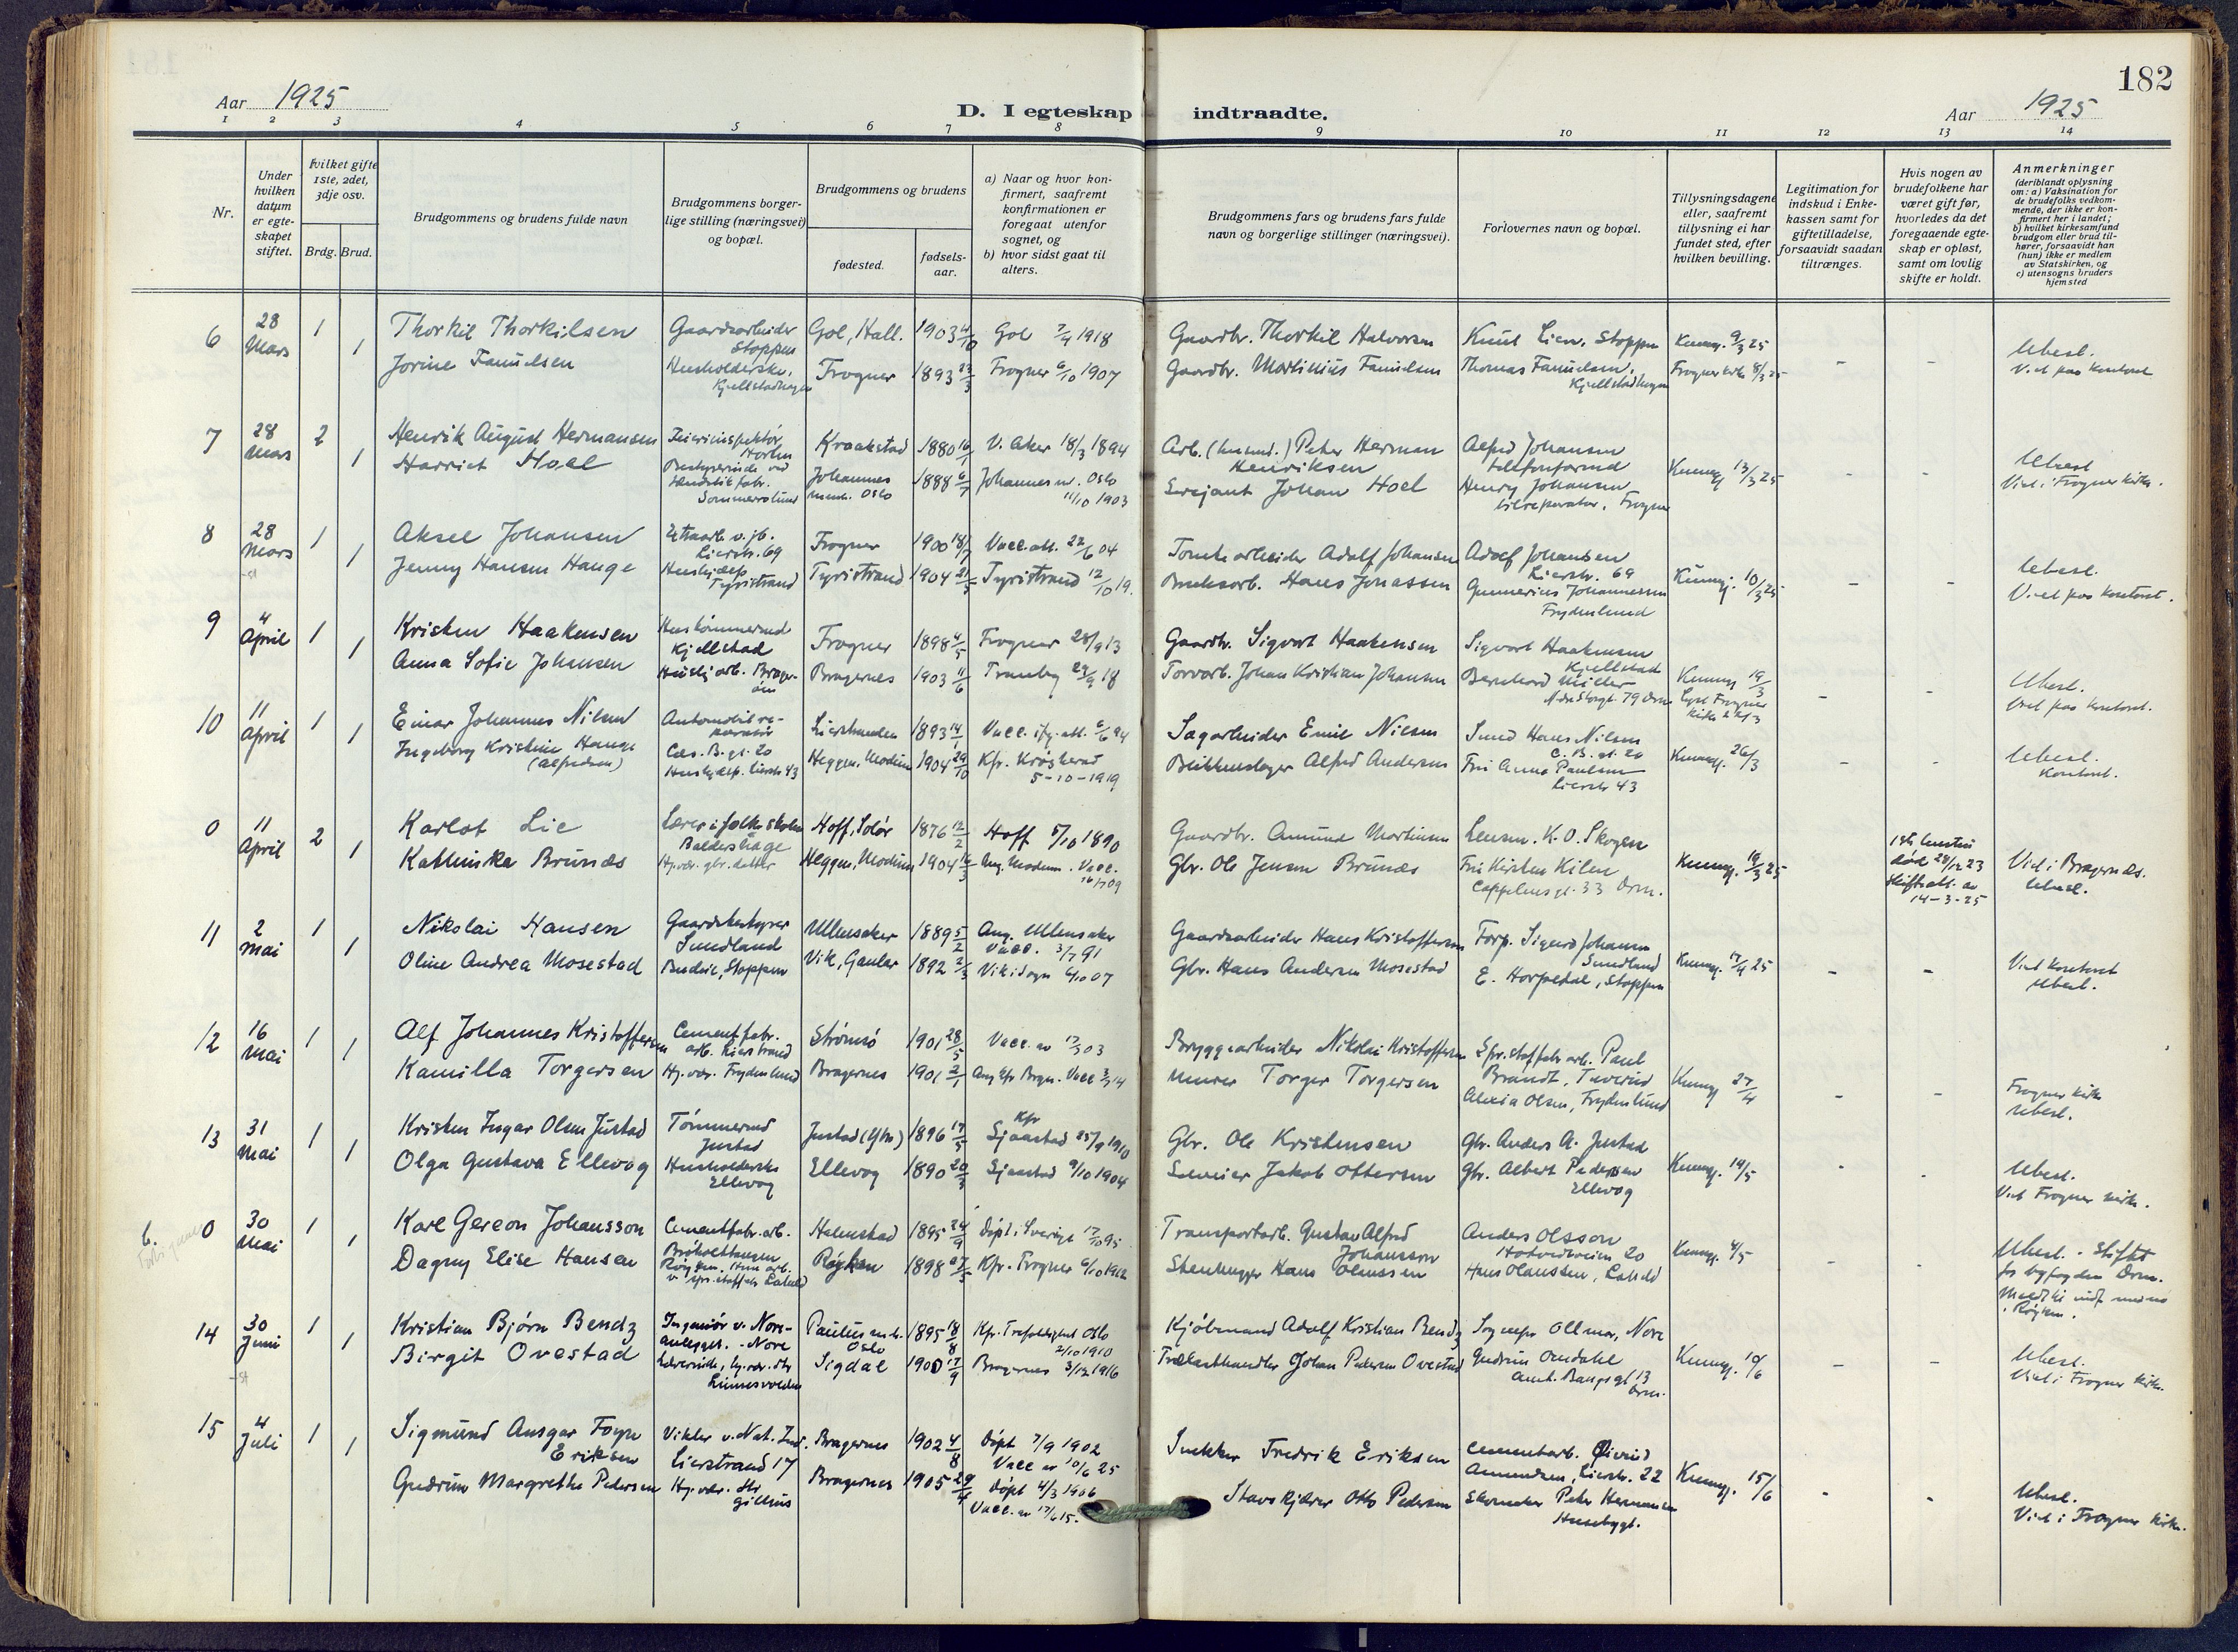 182
Aar 1925
D. I egteskap indtraadte.
Aar 1925
1 2 3 4 5 6 7 8 9 10 11 12 13 14
Nr.
Under hvilken datum er egteskapet stiftet.
Hvilket gifte 1ste, 2det, 3dje osv.
Brdg. Brud.
Brudgommens og brudens fulde navn
Brudgommens borgerlige stilling (næringsvei) og bopæl.
Brudgommens og brudens
fødested.
fødselsaar.
a) Naar og hvor konfirmert, saafremt konfirmationen er foregaat utenfor sognet, og
b) hvor sidst gaat til alters.
Brudgommens fars og brudens fars fulde navn og borgerlige stillinger (næringsvei).
Forlovernes navn og bopæl.
Tillysningsdagene eller, saafremt tillysning ei har fundet sted, efter hvilken bevilling.
Legitimation for indskud i Enkekassen samt for giftetilladelse, forsaavidt saadan tiltrænges.
Hvis nogen av brudefolkene har været gift før, hvorledes da det foregaaende egteskap er opløst, samt om lovlig skifte er holdt.
Anmerkninger (deriblandt oplysning om: a) Vaksination for de brudefolks vedkommende, der ikke er konfirmert her i landet; b) hvilket kirkesamfund brudgom eller brud tilhører, forsaavidt han (hun) ikke er medlem av Statskirken, og c) utensogns bruders hjemsted
6 28 Mars 1 Thorkil Thorkilsen Gaardsarbeider Stoppen Gol, Hall. 1903 4/10 Gol 7/4 1918 Gaardbr. Thorkil Halvorsen Knut Lien, Stoppen Kunng. 9/3 25
1 Jorine Fanuelsen Husholderske, Kjellstadhagen Frogner 1893 23/3 Frogner 6/10 1907 Gaardbr. Martinius Fanuelsen Thomas Fanuelsen, Kjellstadhagen Frogner kirke 8/3 25 - - Ubesl. Viet paa kontoret
7 28 Mars 2 Henrik August Hermansen Kraakstad 1880 16/1 V. Aker 18/3 1894 Arb. (husmd.) Peter Herman Henriksen Alfred Johansen telefonformd
1 Harriet Hoel Sommerrolund Johannes menh. Oslo 1888 6/7 Johannes m. Oslo 11/10 1903 Sersjant Johan Hoel Henry Johansen bilreparatør, Frogner Kunng. 13/3 25 - - Ubesl Viet i Frogner kirke.
8 28 Mars 1 Aksel Johansen Lierstr. 69 Frogner 1900 18/7 Vacc. att. 22/6 04 Tomtearbeider Adolf Johansen Adolf Johansen Lierstr. 69
1 Jenny Hansen Hauge Hushjælp Tyristrand Tyristrand 1904 21/5 Tyristrand 12/10 19. Bruksarb. Hans Jonassen Gunnerius Johannessen Frydenlund Kunng. 10/3 25 - - Ubesl. Viet paa kontoret.
9 4 April 1 Kristen Haakensen Kjellstad Frogner 1898 4/5 Frogner 28/9 13 Gaardbr. Sigvart Haakensen Sigvart Haakensen Kjellstad
1 Anna Sofie Johansen Bragernes 1903 11/6 Tranby 29/9 18 Torvarb. Johan Kristian Johansen Bernhard Møller 79 Drm Kunng 19/3 Lyst Frogner kirke - - Ubesl. Viet paa kontoret.
10 11 April 1 Einar Johannes Nilsen Automobilreparatør Lierstranden 1893 14/1 Sagarbeider Emil Nilsen Hans Nilsen
1 Ingeborg Kristine Hauge (Alfredsen) Hushjælp. Lierstr 43 Heggen, Modum 1904 29/10 Kfr. Krødsherad 5-10-1919 Blikkenslager Alfred Andersen Fru Anna Paulsen Lierstr 43 Kunng. 26/3 - - Ubesl. Kontoret.
0 11 April 2 Karlot Lie Lærer i folkeskolen Baldershage Hoff, Solør 1876 12/2 Hoff 5/10 1890 Gaardbr. Amund Martinsen Lensm. K. O. Skogen
1 Kathinka Brunæs Hj.vær. gbr. datter Heggen, Modum 1904 Ang. Modum. Vacc. Gbr. Ole Jensen Brunæs Fru Kirsten Kilen Cappelensgt. 33 Drm. Kunng. 19/3 25 1ste hustru død 28/12 23 Skifteatt. av 14-3-25 Viet i Bragernæs. Ubesl.
11 2 Mai 1 Nikolai Hansen Gaardsbestyrer Sundland Ullensaker 1889 5/2 Ang. Ullensaker Vacc. 3/7 91 Gaardsarbeider Hans Kristoffersen Forp. Sigurd Johansen Sundland
1 Oline Andrea Mosestad Budeie, Stoppen Vik, Gaular 1892 2/3 Vik i Sogn 6/10 07 Gbr. Hans Andersen Mosestad E. Horpedal, Stoppen Kunng. 17/4 25 - - Viet kontoret Ubesl.
12 16 Mai 1 Alf Johannes Kristoffersen Cementfabr. arb. Lierstrand Strømsø 1901 28/5 Vacc. av 17/3 03 Bryggearbeider Nikolai Kristoffersen Paul Brandt, Tuverud
1 Kamilla Torgersen Hj. vær. Frydenlund Bragernes 1901 2/1 Murer Torger Torgersen Alexia Olsen, Frydenlund Kunng 27/4 - - Frogner kirke Ubesl.
13 31 Mai 1 Kristen Ingar Olsen Justad Tømmermd Justad Justad 1896 17/5 Kfr Sjaastad 25/9 1910 Gbr. Ole Kristensen Gbr. Anders A. Justad
1 Olga Gustava Ellevog Husholderske Ellevog Ellevog 1890 20/3 Sjaastad 9/10 1904 Jakob Ottersen Gbr. Albert Pedersen Ellevog Kunng. 14/5 - - Ubesl. Viet Frogner kirke.
b. 0 30 Mai 1 Karl Gereon Johansson Cementfabr. arb. Halmstad 1895 24/9 Døpt i Sverige 17/10 95 Transportarb. Gustav Alfred Johansson Anders Olsson Hotvedtveien 20
1 Dagny Elise Hansen Røyken 1898 Kfr. Frogner 6/10 1912 Stenhugger Hans Olaussen Hans Olaussen, Lahell Kunng. 4/5 - - Ubesl. - Stiftet for byfogden Drm.
14 30 Juni 1 Kristian Bjørn Bendz Ingeniør v. Noreanlegget. - Nore Paulus m.h. Oslo 1895 18/8 Kfr. Trefoldighet Oslo 2/10 1910 Kjøbmand Adolf Kristian Bendz Sognepr Ollmar, Nore
1 Birgit Ovestad Lærerinde, hj. vær. dtr Linnesvolden Sigdal 1900 17/9 Bragernes 3/12 1916 Trælasthandler Johan Pedersen Ovestad Gudrun Omdahl Drm. Kunng. 10/6 - - Ubesl. Viet i Frogner kirke.
15 4 Juli 1 Sigmund Ansgar Eriksen Vikler v. Nat. Ind. Lierstrand 17 Bragernes 1902 4/8 Døpt 7/9 1902 Vacc av 10/6 25 Snekker Fredrik Eriksen Cementarb. Øivind Amundsen, Lierstr. 22
1 Gudrun Margrethe Pedersen Hj. vær. dtr Gilhus Bragernes 1905 29/4 Døpt 4/3 1906 Vacc. av 17/6 15. Otto Pedersen Skomaker Peter Hermansen Husebygt. Kunng. 15/6 - - Ubesl. Viet i Frogner kirke.